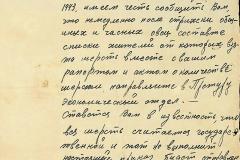 1943, имеем честь сообщить Вам,
что немедленно после стрижки общин-
ных и частных овец составте
списки жителей от которых вз-
то шерсть вместе с вашим
рапортом и актом о количестве
шерсти направление в
Экономический отдел. —
Ставится Вам в известность, что
вся шерсть считается государ-
ственной и кто не выполнит
настоящий приказ будет